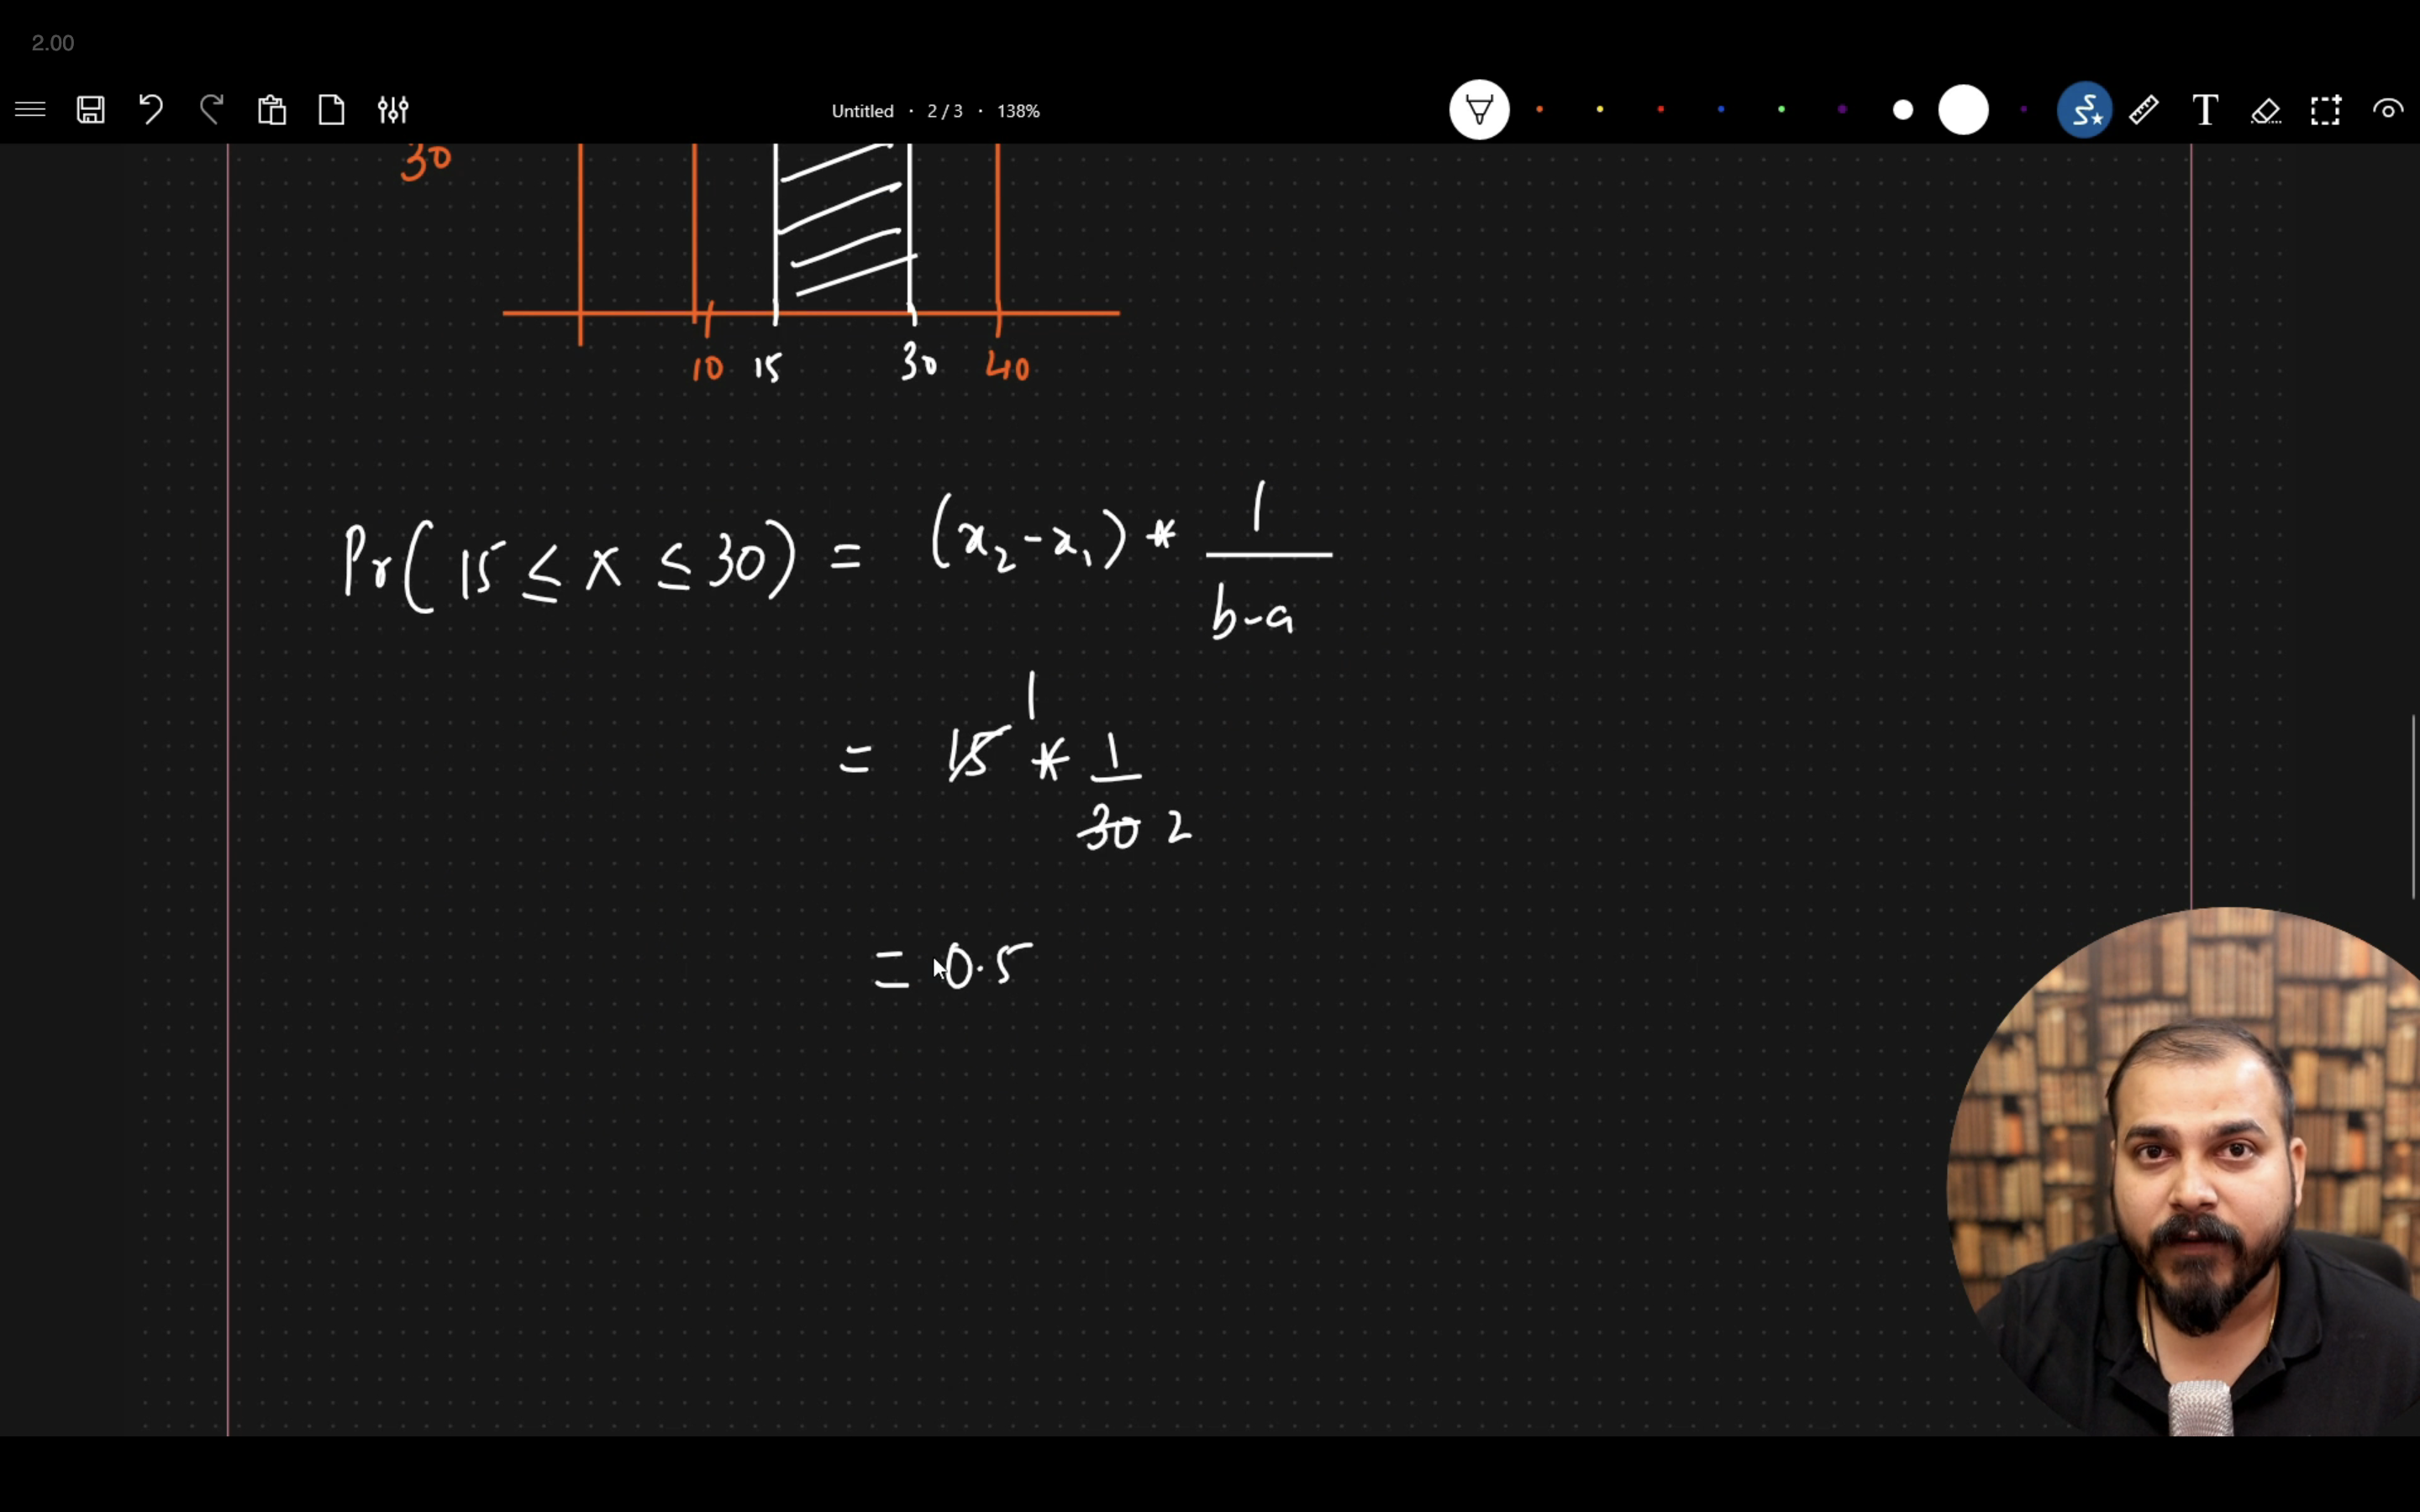 2.00
Untitled · 2 / 3 · 138%
T
30
10 15 30 40
Pr( 15 ≤ x ≤ 30) = (x₂-x₁) * 1
b-a
1
= 15 * 1
30 2
= 0.5